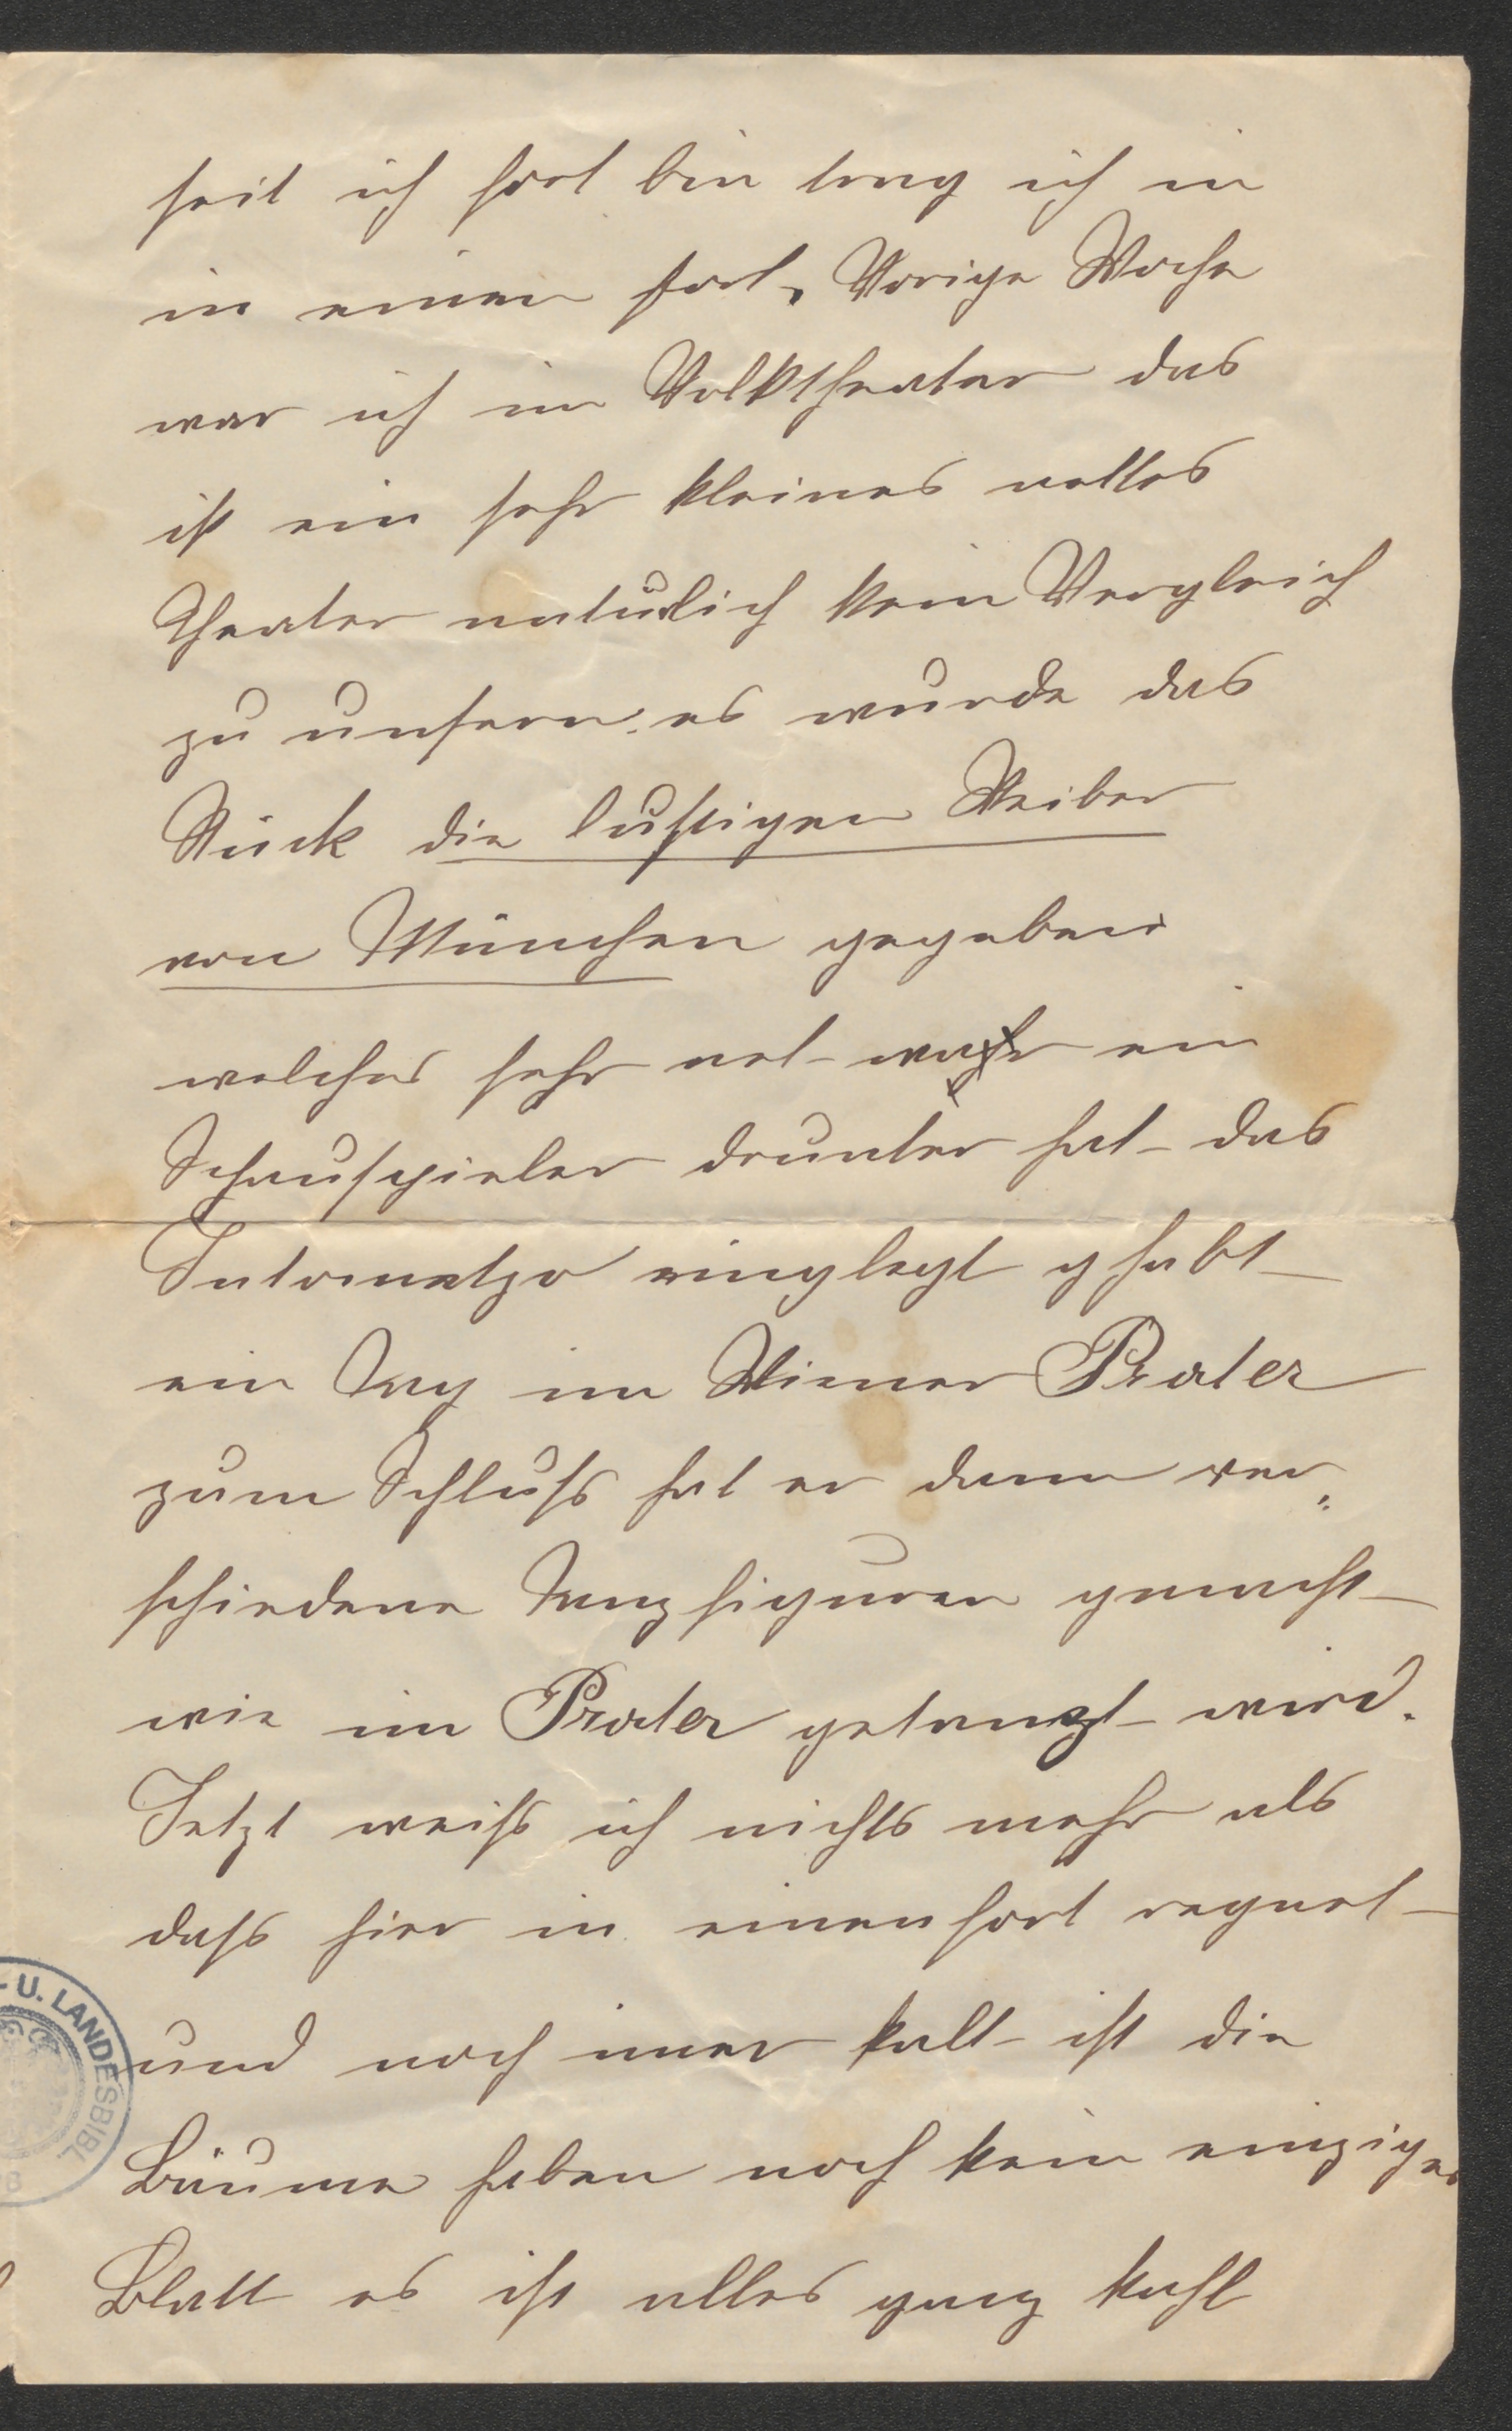 seit ich fort bin trag ich in
in einen fort. Vorige Woche
war ich im Volkstheater das
ist ein sehr kleines nettes
Theater natürlich kein Vergleich
zu unsern. es wurde das
Stück die lustigen Weiber
von München gegeben
welches sehr net war ein
Schauspieler drunter hat das
einglegt ghabt
ein Tag im Wiener Prater
zum Schluß hat er dann ver„
schiedene Tanzfiguren gemacht
wie im Prater getanzt wird.
Jetzt weiß ich nichts mehr als
daß hier in einenfort regnet
und noch imer kalt ist die
Bäume haben noch kein einziges
Blatt es ist alles ganz kahl
- U. LANDESBIBL